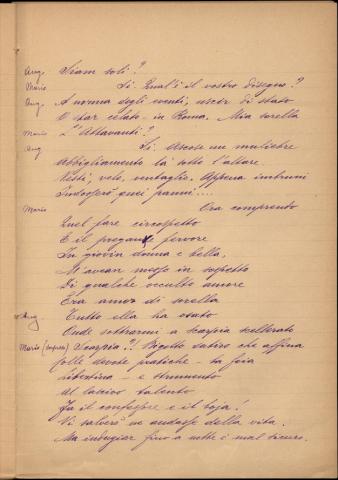 Ang. Siam soli?
Mario Sì. Qual'è il vostro disegno?
Ang. A norma degli eventi, uscir di stato
O star celato in Roma. Mia sorella
Mario L'Attavanti?
Ang Sì. Ascose un muliebre
abbigliamento là sotto l'altare
Vesti, velo, ventaglio. Appena imbruni
Indosserò quei panni...
Mario Ora comprendo
Quel fare circospetto
E il pregante fervore
In giovin donna e bella,
M'avean messo in sospetto
Di qualche occulto amore
Era amor di sorella
Ang. Tutto ella ha osato
Onde sottrarmi a Scarpia scellerato
Mario Scarpia?! Bigotto satiro che affina
colle devote pratiche - la foia
libertina - e strumento
Al lascivo talento
Fa il confessore e il boja!
Vi salverò ne andasse della vita.
Ma indugiar fino a notte è mal sicuro.